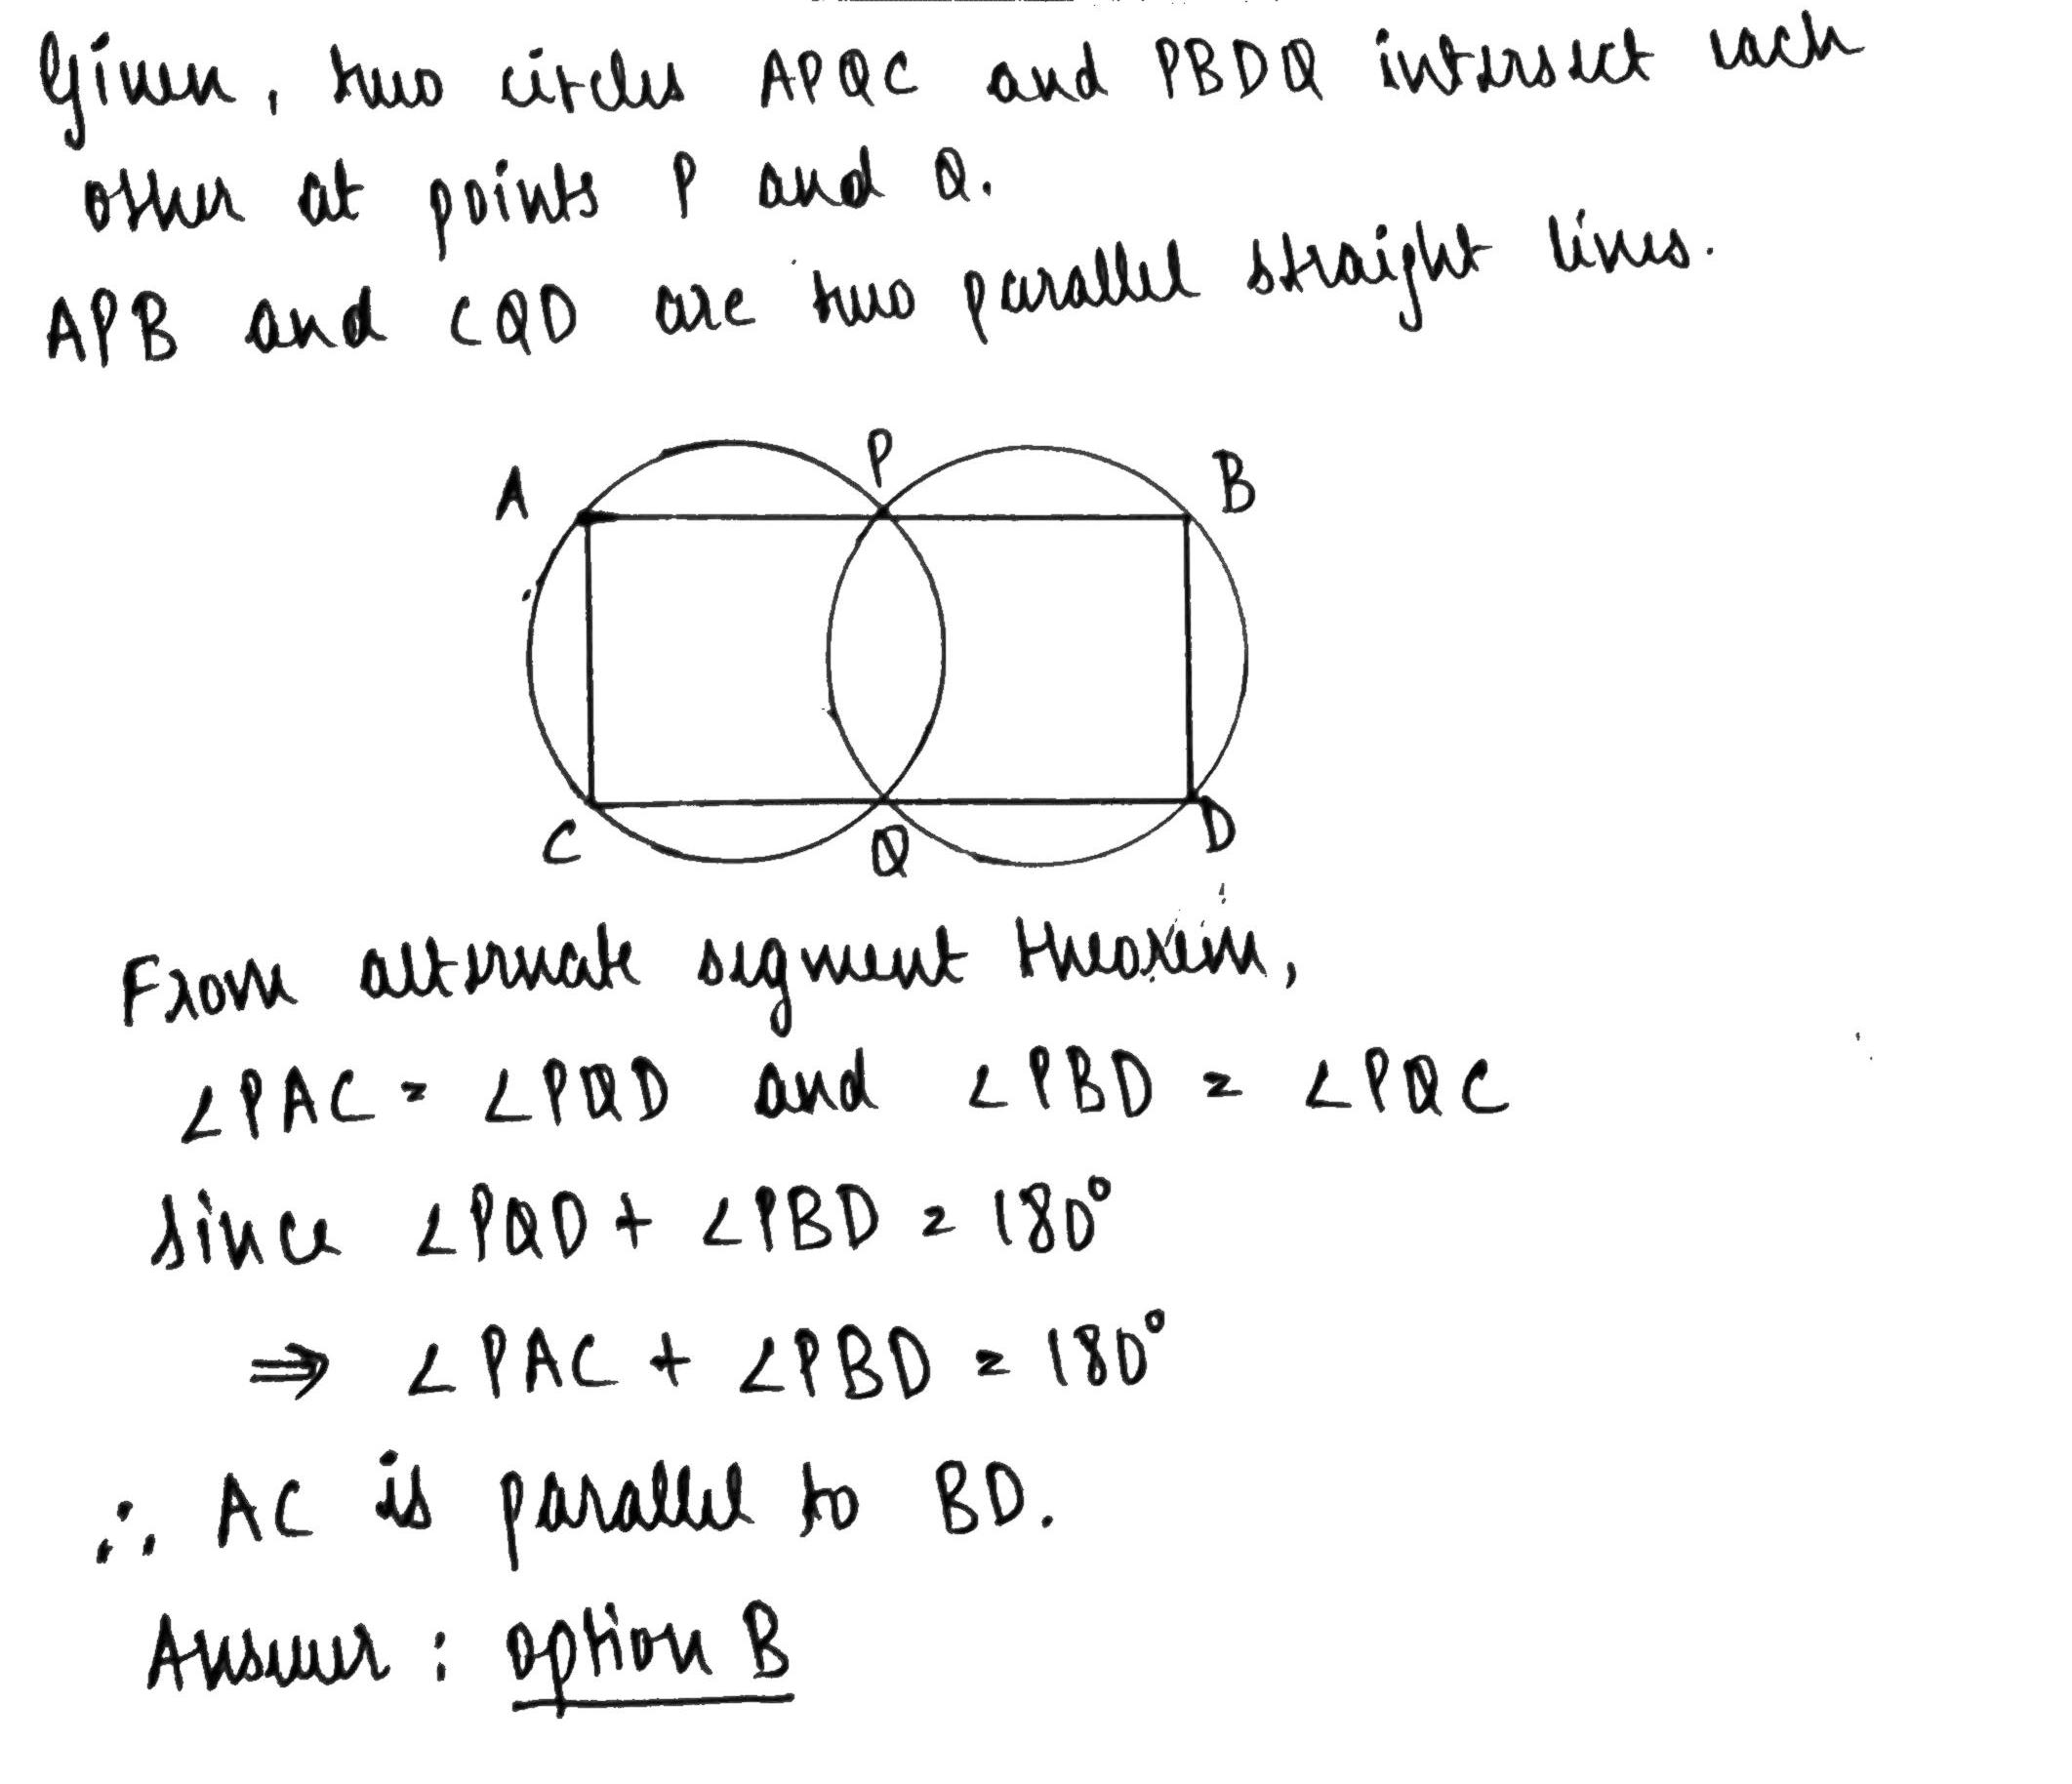 Given, two circles APQC and PBDQ intersect each
other at points P and Q.
APB and CQD are two parallel straight lines.
A P B
C Q D
From alternate segment theorem,
∠PAC = ∠PQD and ∠PBD = ∠PQC
Since ∠PQD + ∠PBD = 180°
⇒ ∠PAC + ∠PBD = 180°
∴ AC is parallel to BD.
Answer : option B